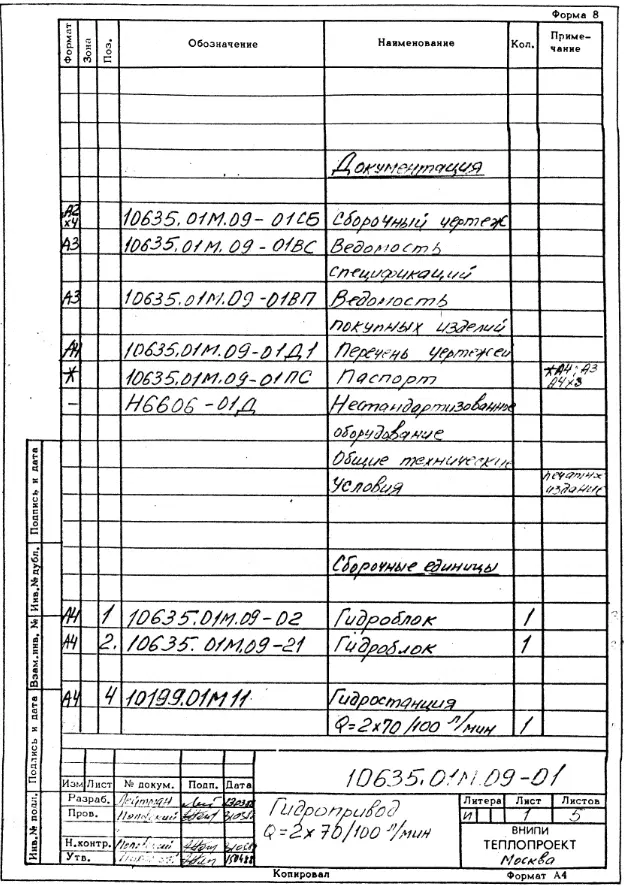 Форма 8
Формат Зона Поз. Обозначение Наименование Кол. Приме-
чание
Документация
А2
х4 10635.01М.09-01СБ Сборочный чертеж
А3 10635.01М.09-01ВС Ведомость
спецификаций
А3 10635.01М.09-01ВП Ведомость
покупных изделий
А4 10635.01М.09-01Д1 Перечень чертежей
* 10635.01М.09-01ПС Паспорт *А4; А3
А4х3
- Н6606-01Д Нестандартизованное
оборудование
Общие технические
условия печатных
издание
Сборочные единицы
А4 1 10635.01М.09-02 Гидроблок 1
А4 2. 10635.01М.09-21 Гидроблок 1
А4 4 10199.01М11 Гидростанция
Q=2х70/100 л/мин 1
Инв.№ подл. Подпись и дата Взам.инв. № Инв.№ дубл. Подпись и дата
10635.01М.09-01
Изм Лист № докум. Подп. Дата
Разраб.
Пров.
Н.контр.
Утв.
Гидропривод
Q=2х70/100 л/мин
Литера Лист Листов
И 1 5
ВНИПИ
ТЕПЛОПРОЕКТ
Москва
Копировал Формат А4